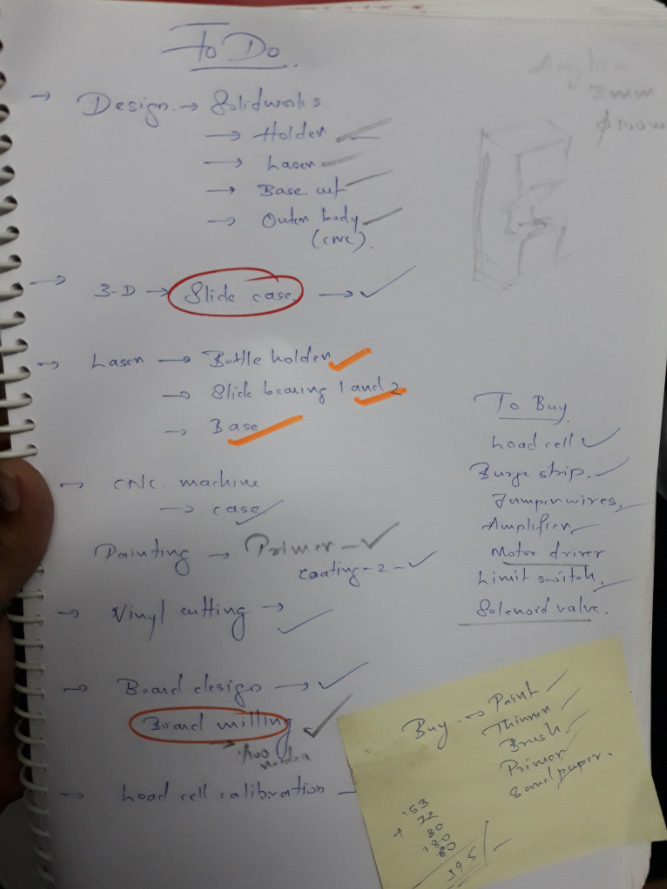 To Do.
→ Design → Solidworks.
→ Holder
→ Laser
→ Base cut
→ Outer body
(cnc).
→ 3-D → Slide case. →
→ Laser → Bottle holder
→ Slide bearing 1 and 2
→ Base
→ CNC. machine
→ case
Painting → Primer -
coating - 2 -
→ Vinyl cutting →
→ Board design →
Board milling
→ Load cell calibration -
8mm
To Buy
Load cell
Burge strip.
Jumper wires,
Amplifier
Motor driver
Limit switch.
Solenoid valve.
Buy → Paint
Thinner
Brush
Primer
Sand paper.